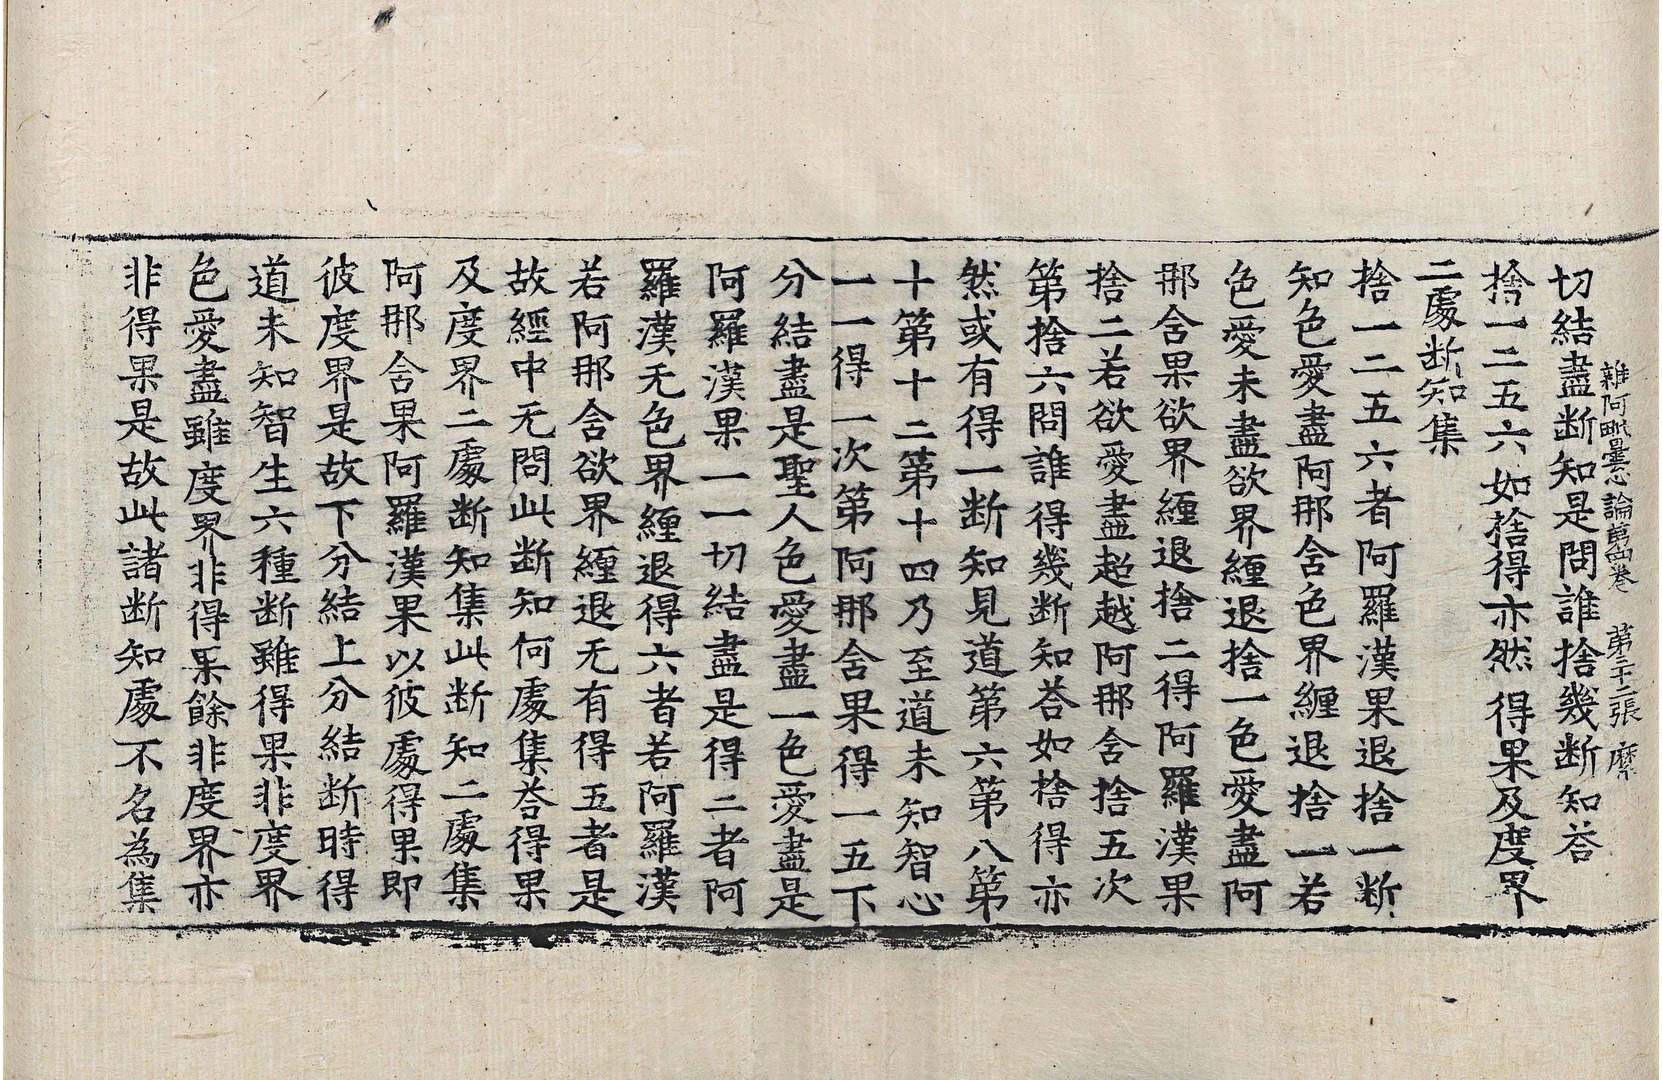 雜阿毗曇心論苐四卷 第三十二張 縻
切結盡断知是問誰捨幾断知荅
捨一二五六如捨得亦然 得果及度界
二處断知集
捨一二五六者阿羅漢果退捨一断
知色愛盡阿那含色界纏退捨一若
色愛未盡欲界纏退捨一色愛盡阿
那含果欲界纏退捨二得阿羅漢果
捨二若欲愛盡超越阿那含捨五次
第捨六問誰得幾断知荅如捨得亦
然或有得一断知見道第六第八第
十第十二第十四乃至道未知智心
一一得一次第阿那含果得一五下
分結盡是聖人色愛盡一色愛盡是
阿羅漢果一一切結盡是得二者阿
羅漢无色界纏退得六者若阿羅漢
若阿那含欲界纏退无有得五者是
故經中无問此断知何處集荅得果
及度界二處断知集此断知二處集
阿那含果阿羅漢果以彼處得果即
彼度界是故下分結上分結断時得
道未知智生六種断雖得果非度界
色愛盡雖度界非得果餘非度界亦
非得果是故此諸断知處不名為集